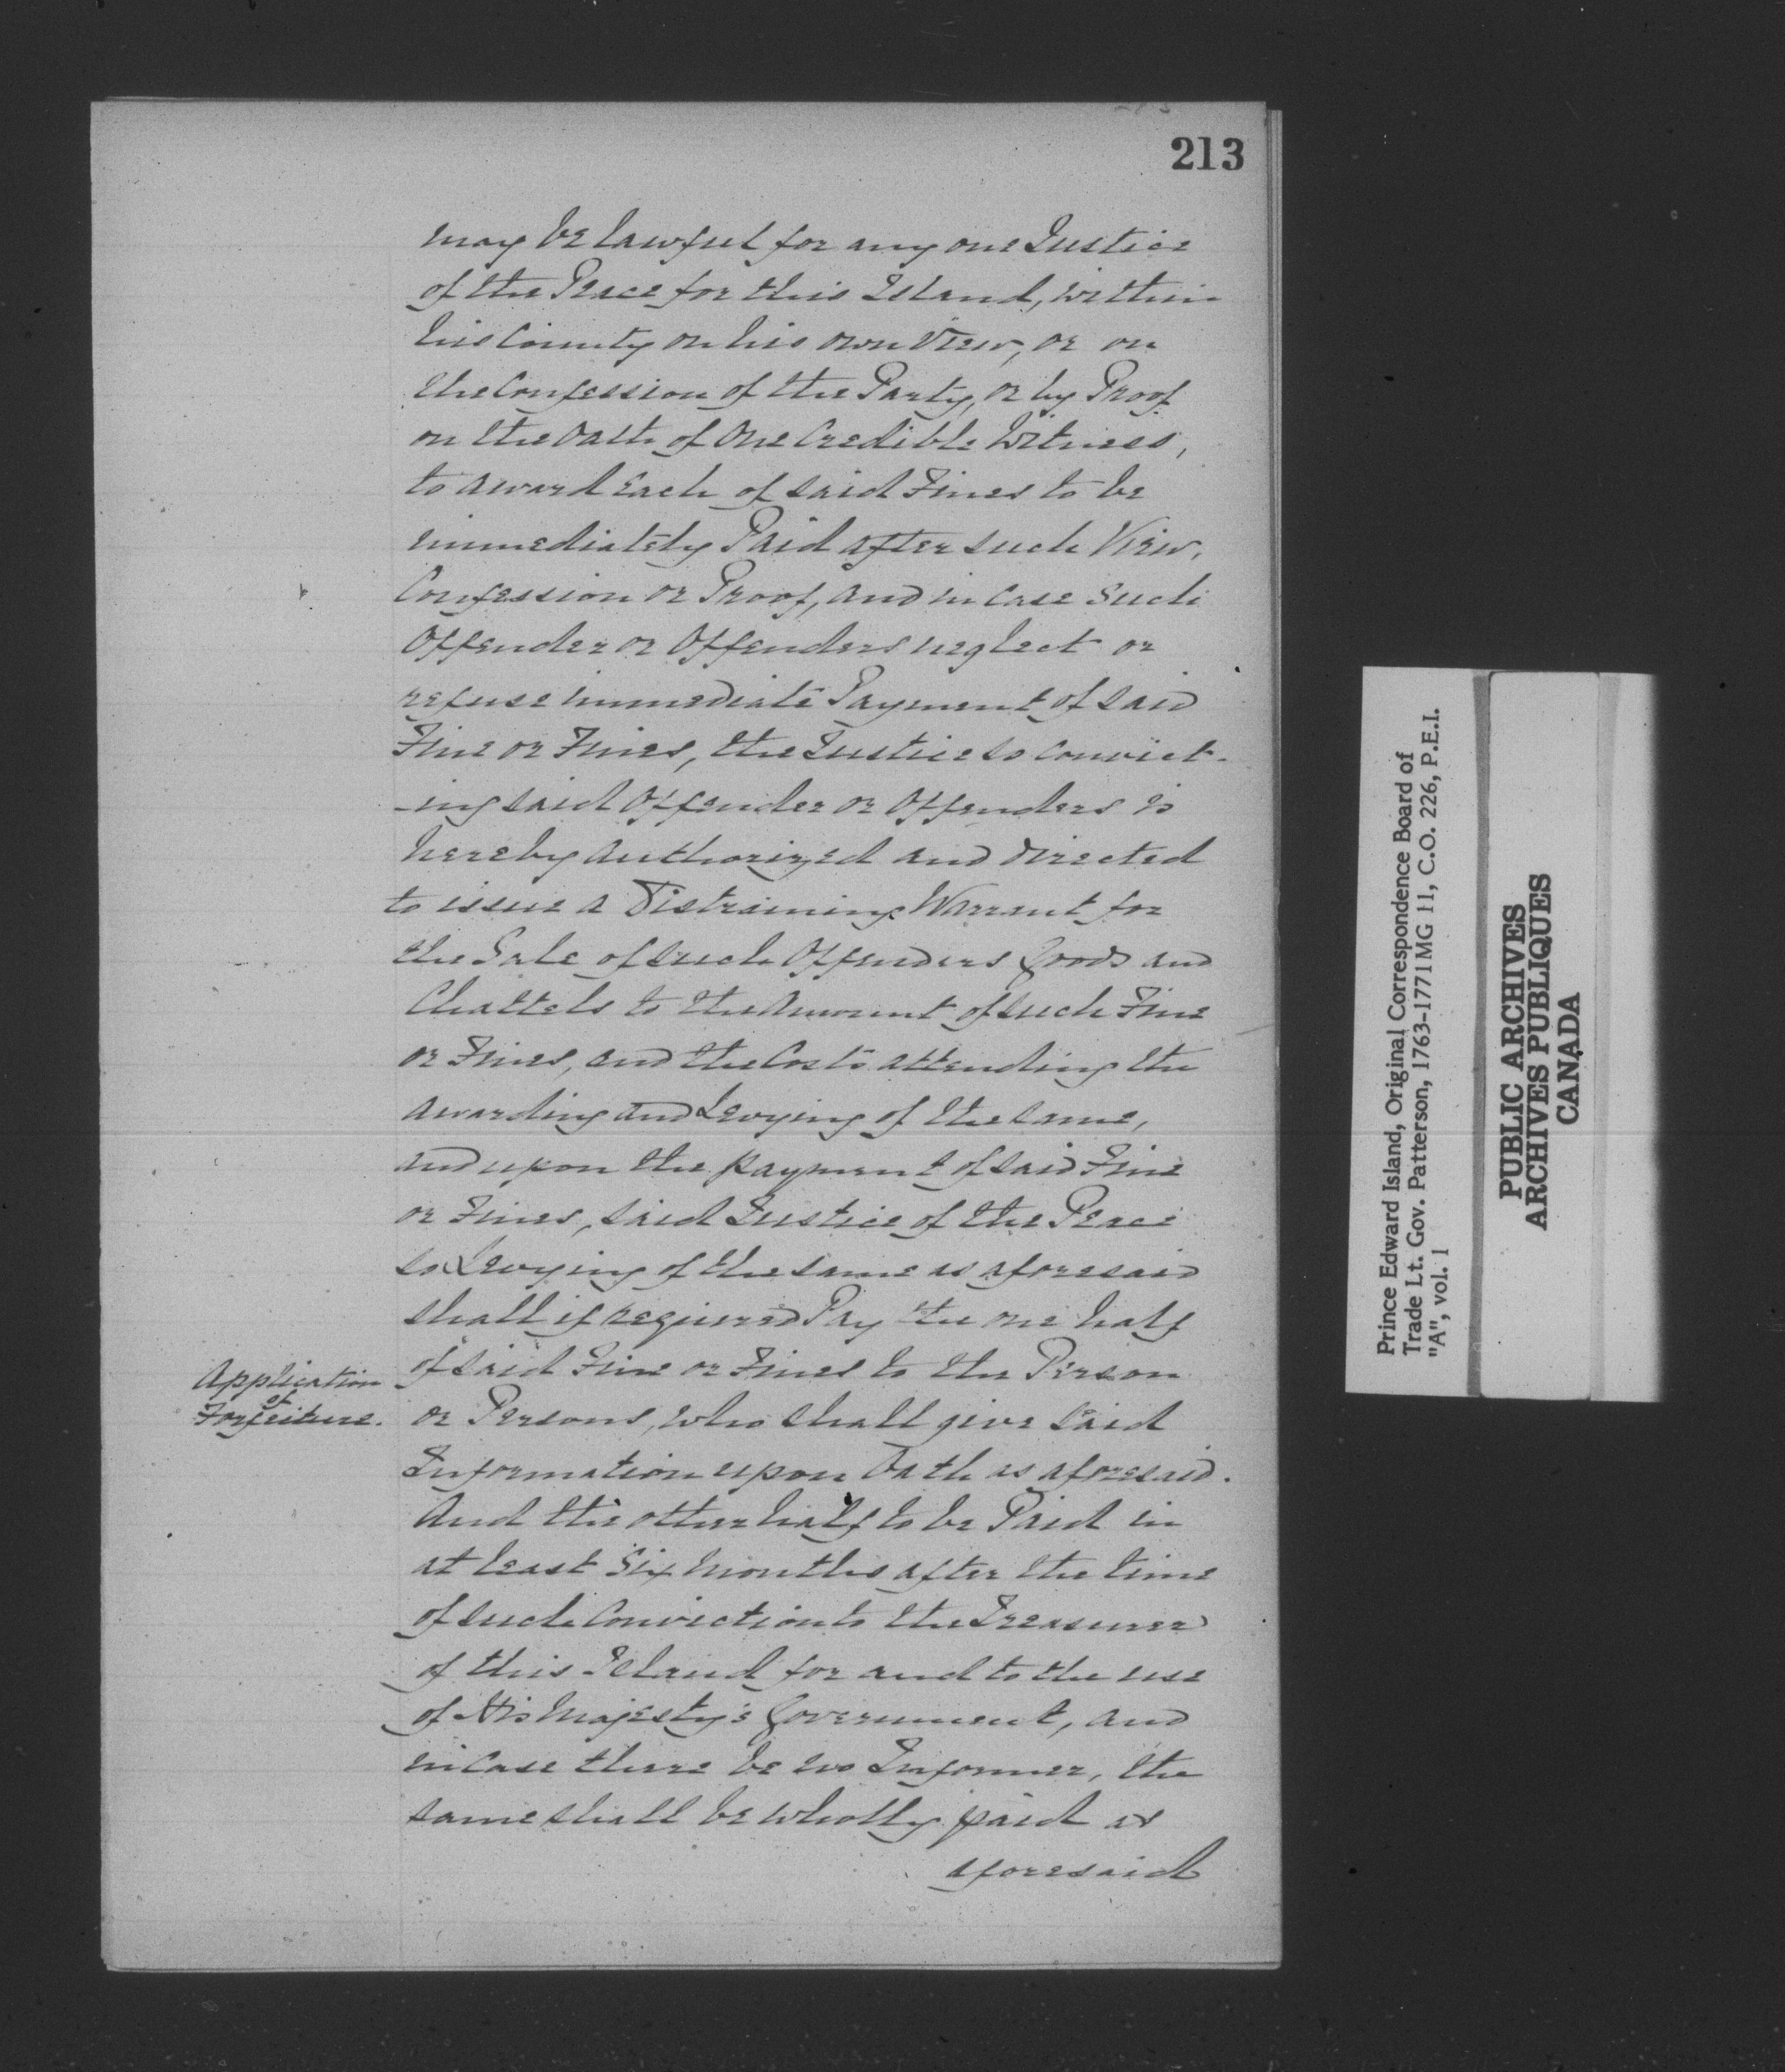 213
may be lawful for any one Justice
of the Peace for this Island, within
his County on his own View, or on
the Confession of the Party, or by Proof
on the Oath of One Credible Witness,
to award Each of said Fines to be
immediately Paid after such View,
Confession or Proof, and in Case Such
Offender or Offenders neglect or
refuse immediate Payment of said
Fine or Fines, the Justice so convict-
-ing said Offender or Offenders is
hereby authorized and directed
to issue a Distraining Warrant for
the Sale of such Offenders Goods and
Chattels to the Amount of such Fine
or Fines, and the Costs attending the
awarding and Levying of the same,
and upon the payment of said Fine
or Fines, said Justice of the Peace
so Levying of the same as aforesaid
shall if required Pay the one half
of said Fine or Fines to the Person
or Persons, who shall give said
Information upon Oath as aforesaid.
And the other half to be Paid in
at least Six Months after the time
of such Conviction to the Treasurer
of this Island for and to the use
of His Majesty's Government, and
in Case there be no Informer, the
same shall be wholly paid as
aforesaid
Application
of
Forfeiture.
Prince Edward Island, Original Correspondence Board of
Trade Lt. Gov. Patterson, 1763-1771 MG 11, C.O. 226, P.E.I.
"A", vol. 1
PUBLIC ARCHIVES
ARCHIVES PUBLIQUES
CANADA